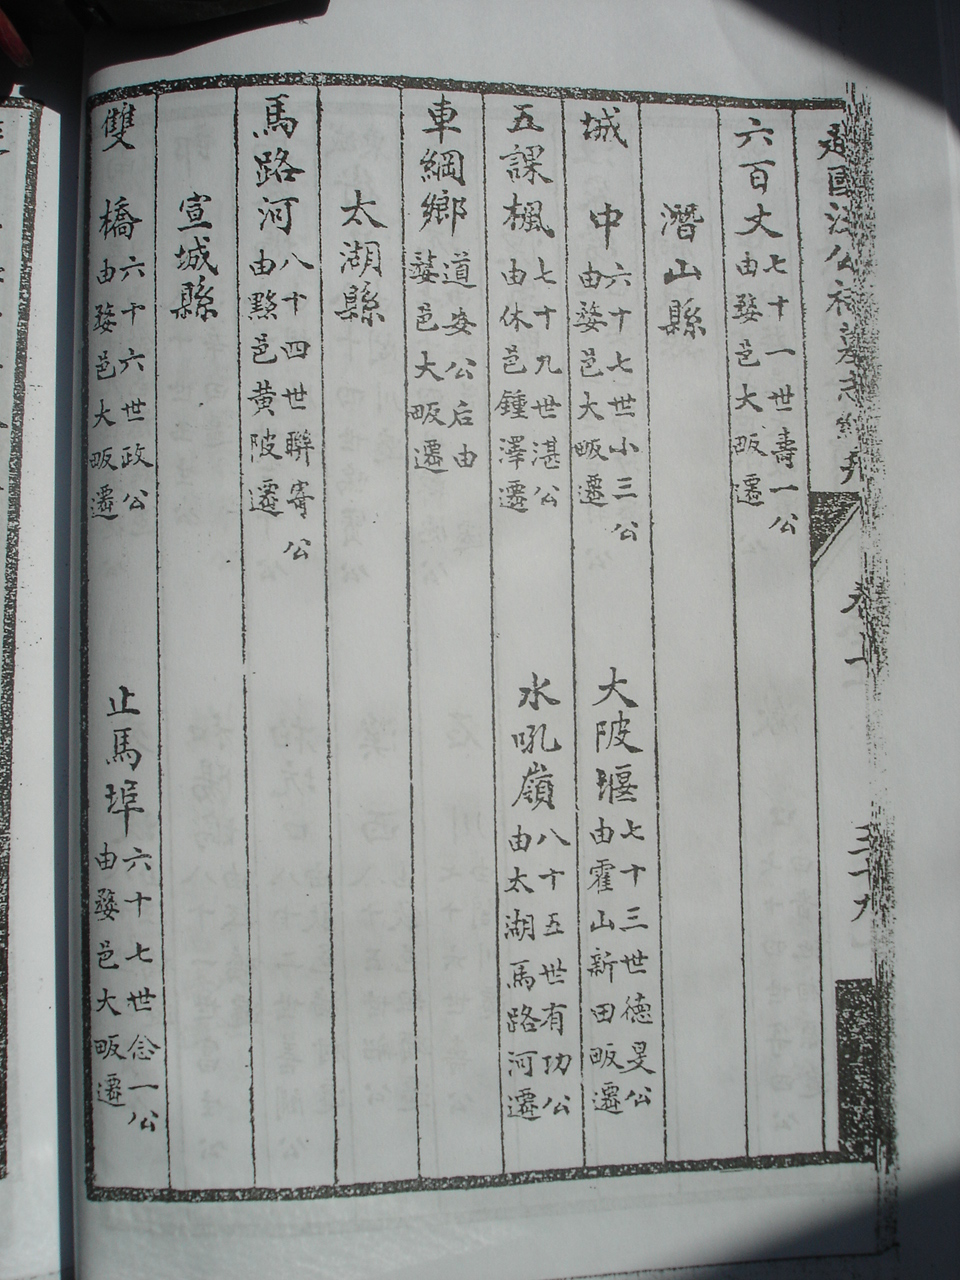 越國汪公祠墓志續刊
卷上
三十九
六百丈 七十一世壽一公由婺邑大畈遷
潛山縣
城中 六十七世小三公由婺邑大畈遷
大陂堰 七十三世德旻公由霍山新田畈遷
五課楓 七十九世湛公由休邑鍾澤遷
水吼嶺 八十五世有功公由太湖馬路河遷
車綱鄉 道安公后由婺邑大畈遷
太湖縣
馬路河 八十四世聨寄公由黟邑黄陂遷
宣城縣
雙橋 六十六世政公由婺邑大畈遷
止馬埠 六十七世念一公由婺邑大畈遷